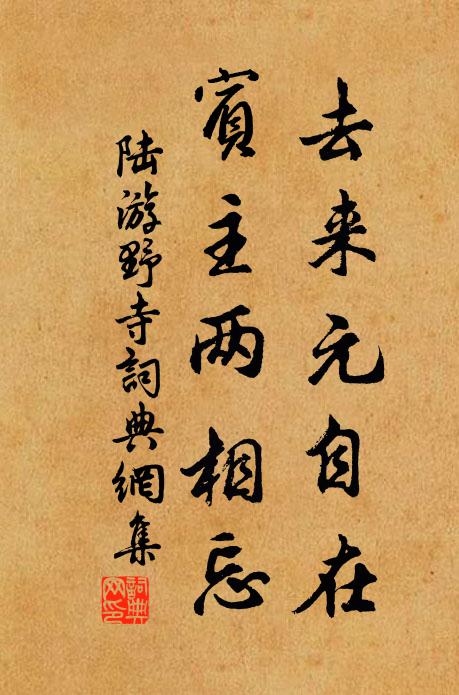 去来元自在
賓主两相忘
陆游野寺詞典網集
詞典網印